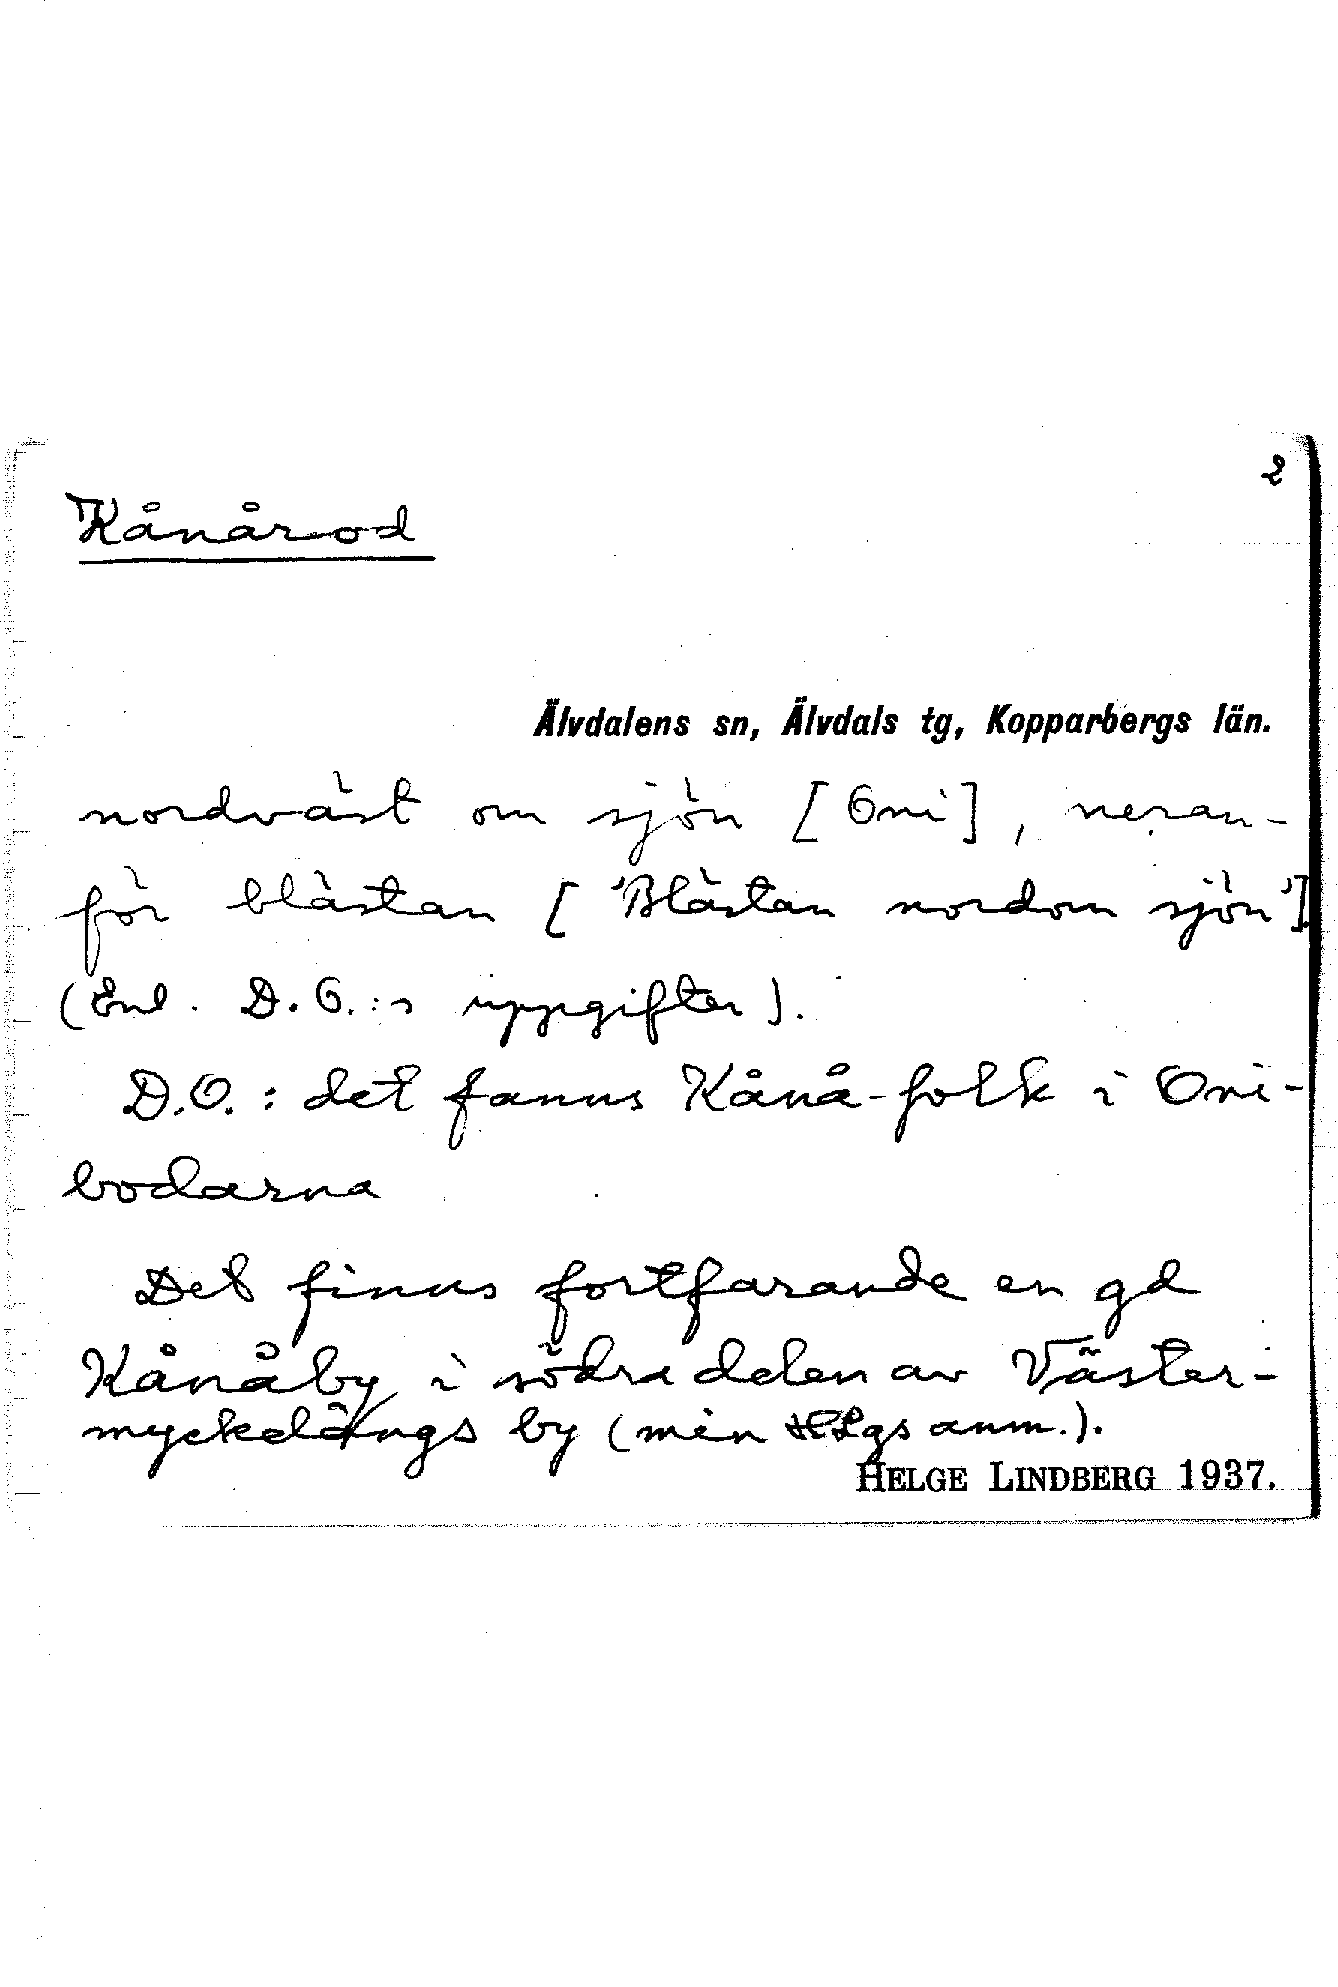 2
Kånårod
Älvdalens sn, Älvdals tg, Kopparbergs län.
nordväst om sjön [Oni], neran-
för blästan ['Blästan nordom sjön']
(Enl. D.O.:s uppgifter).
D.O.: det fanns Kånå-folk i Oni-
bodarna
Det finns fortfarande en gd
Kånåby i södra delen av Väster-
myckelängs by (min HLgs anm.).
HELGE LINDBERG 1937.